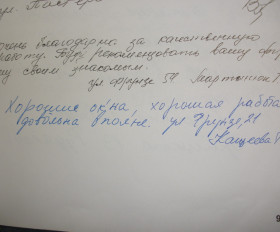 ул.
очень благодарна за качественную
работу. Буду рекомендовать вашу
своим знакомым.
ул Фрунзе 54 Мартынюк
Хорошие окна, хорошая работа
довольна полне. ул Фрунзе, 21
Кащеева